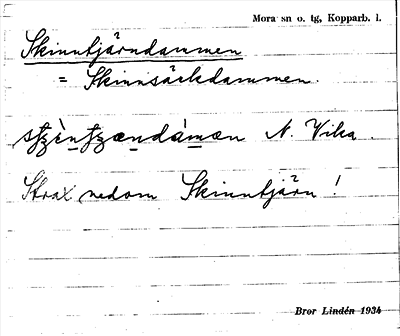 Mora sn o. tg, Kopparb. l.
Skinntjärndammen
= Skinnsärkdammen.
N. Vika.
Strax nedom Skinntjärn!
Bror Lindén 1934